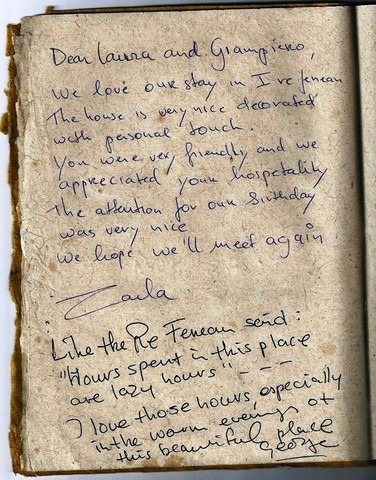 Dear Laura and Giampiero,
We love our stay in I tre fenean
The house is very nice decorated
with personal touch.
You were very friendly and we
appreciated your hospetality
The attention for our Birthday
was very nice
We hope we'll meet again
Carla.
Like the Re Fenean said:
"Hours spent in this place
are lazy hours" - - -
I love those hours, especially
in the warm evenings of
this beautiful place
George